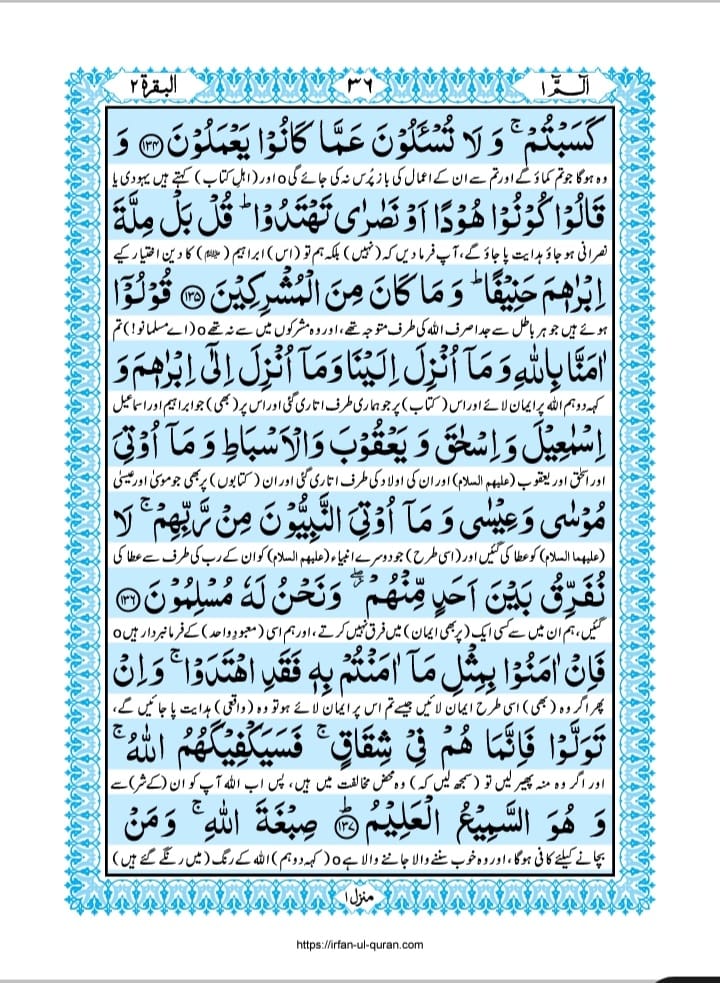 الٓمّٓ ١ ٣٦ البقرة ٢
كَسَبْتُمْ ۚ وَ لَا تُسْـَٔلُوْنَ عَمَّا كَانُوْا يَعْمَلُوْنَ ﴿۱۳۴﴾ وَ
وہ ہوگا جو تم کماؤ گے اور تم سے ان کے اعمال کی باز پُرس نہ کی جائے گیo اور (اہلِ کتاب) کہتے ہیں یہودی یا
قَالُوْا كُوْنُوْا هُوْدًا اَوْ نَصٰرٰى تَهْتَدُوْا ؕ قُلْ بَلْ مِلَّةَ
نصرانی ہو جاؤ ہدایت پا جاؤ گے، آپ فرما دیں کہ (نہیں) بلکہ ہم تو (اس) ابراہیم (علیہ السلام) کا دین اختیار کیے
اِبْرٰهٖمَ حَنِيْفًا ؕ وَ مَا كَانَ مِنَ الْمُشْرِكِيْنَ ﴿۱۳۵﴾ قُوْلُوْۤا
ہوئے ہیں جو ہر باطل سے جدا صرف اللہ کی طرف متوجہ تھے، اور وہ مشرکوں میں سے نہ تھےo (اے مسلمانو!) تم
اٰمَنَّا بِاللّٰهِ وَ مَاۤ اُنْزِلَ اِلَيْنَا وَ مَاۤ اُنْزِلَ اِلٰۤى اِبْرٰهٖمَ وَ
کہہ دو ہم اللہ پر ایمان لائے اور اس (کتاب) پر جو ہماری طرف اتاری گئی اور اس پر (بھی) جو ابراہیم اور اسماعیل
اِسْمٰعِيْلَ وَ اِسْحٰقَ وَ يَعْقُوْبَ وَ الْاَسْبَاطِ وَ مَاۤ اُوْتِيَ
اور اسحٰق اور یعقوب (علیہم السلام) اور ان کی اولاد کی طرف اتاری گئی اور ان (کتابوں) پر بھی جو موسیٰ اور عیسیٰ
مُوْسٰى وَ عِيْسٰى وَ مَاۤ اُوْتِيَ النَّبِيُّوْنَ مِنْ رَّبِّهِمْ ۚ لَا
(علیہما السلام) کو عطا کی گئیں اور (اسی طرح) جو دوسرے انبیاء (علیہم السلام) کو ان کے رب کی طرف سے عطا کی
نُفَرِّقُ بَيْنَ اَحَدٍ مِّنْهُمْ ۖ وَ نَحْنُ لَهٗ مُسْلِمُوْنَ ﴿۱۳۶﴾
گئیں، ہم ان میں سے کسی ایک (پر بھی ایمان) میں فرق نہیں کرتے، اور ہم اسی (معبودِ واحد) کے فرمانبردار ہیںo
فَاِنْ اٰمَنُوْا بِمِثْلِ مَاۤ اٰمَنْتُمْ بِهٖ فَقَدِ اهْتَدَوْا ۚ وَ اِنْ
پھر اگر وہ (بھی) اسی طرح ایمان لائیں جیسے تم اس پر ایمان لائے ہو تو وہ (واقعی) ہدایت پا جائیں گے،
تَوَلَّوْا فَاِنَّمَا هُمْ فِيْ شِقَاقٍ ۚ فَسَيَكْفِيْكَهُمُ اللّٰهُ ۚ
اور اگر وہ منہ پھیر لیں تو (سمجھ لیں کہ) وہ محض مخالفت میں ہیں، پس اب اللہ آپ کو ان (کے شر) سے
وَ هُوَ السَّمِيْعُ الْعَلِيْمُ ﴿۱۳۷﴾ؕ صِبْغَةَ اللّٰهِ ۚ وَ مَنْ
بچانے کیلئے کافی ہوگا، اور وہ خوب سننے والا جاننے والا ہےo (کہہ دو ہم) اللہ کے رنگ (میں رنگے گئے ہیں)
منزل ١
https://irfan-ul-quran.com